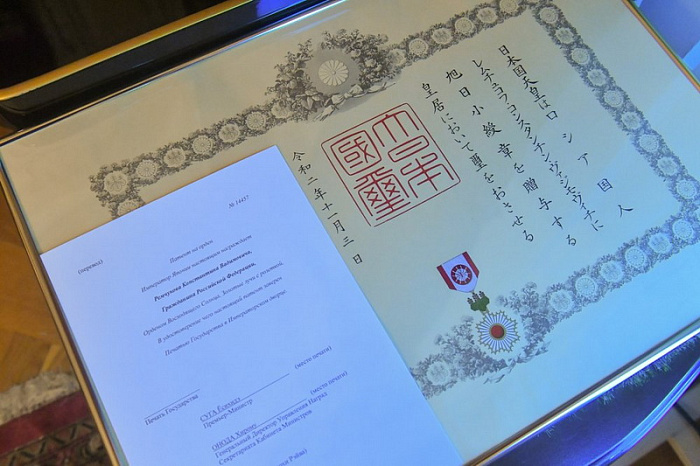 日本国天皇はロシア国人
レムチュコフコンスタンチンヴァジモヴィチに
旭日小綬章を贈与する
皇居において璽をおさせる
大日本國璽
令和二年十一月三日
№ 14437
(перевод)
Патент на орден
Император Японии настоящим награждает
Ремчукова Константина Вадимовича,
Гражданина Российской Федерации,
Орденом Восходящего Солнца, Золотые лучи с розеткой.
В удостоверение чего настоящий патент заверен
Печатью Государства в Императорском дворце.
Печать Государства
(место печати)
СУГА Ёсихидэ
Премьер-Министр
(место печати)
ОНОДА
Генеральный Директор Управления Наград
Секретариата Кабинета Министров
Рэйва)